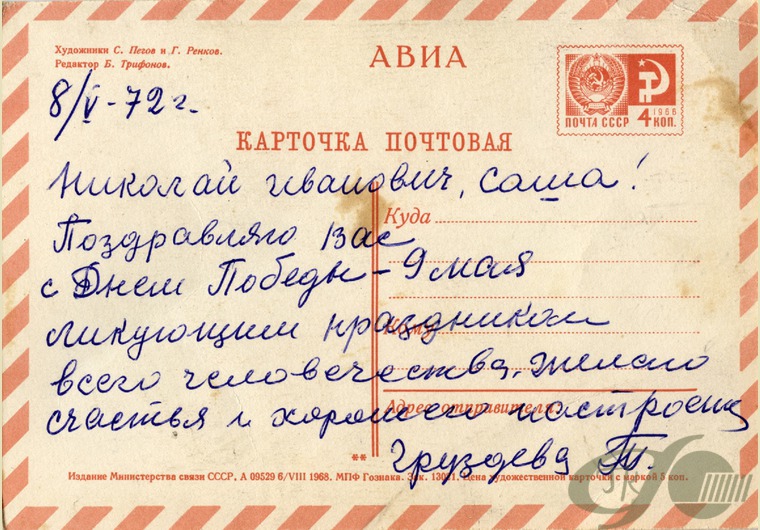 Художники С. Пегов и Г. Ренков.
Редактор Б. Трифонов.
АВИА
ПОЧТА СССР
1966
4 КОП.
8/V-72 г.
КАРТОЧКА ПОЧТОВАЯ
Николай Иванович, Саша!
Куда
Поздравляю Вас
с Днем Победы - 9 мая
ликующим праздником
Кому
всего человечества. Желаю
Адрес отправителя:
счастья и хорошего настроения
Груздева Т.
**
Издание Министерства связи СССР. А 09529 6/VIII 1968. МПФ Гознака. Зак. 13051. Цена художественной карточки с маркой 5 коп.